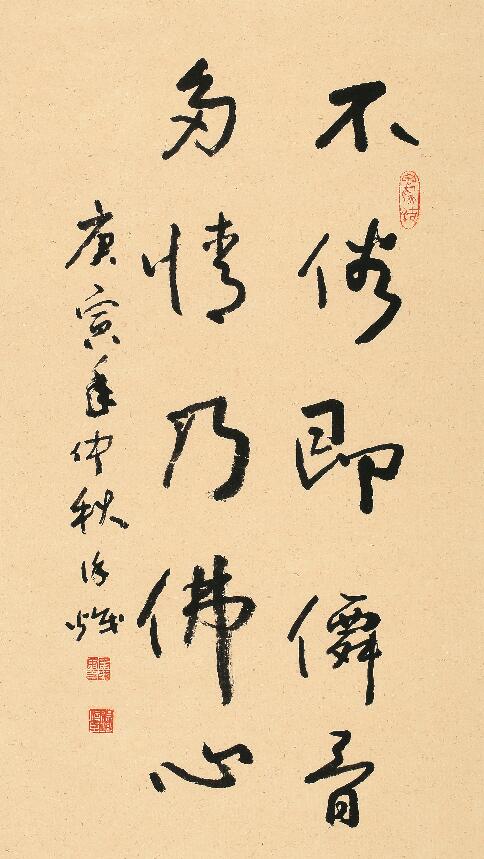 不俗即僊骨
多情乃佛心
庚寅年仲秋